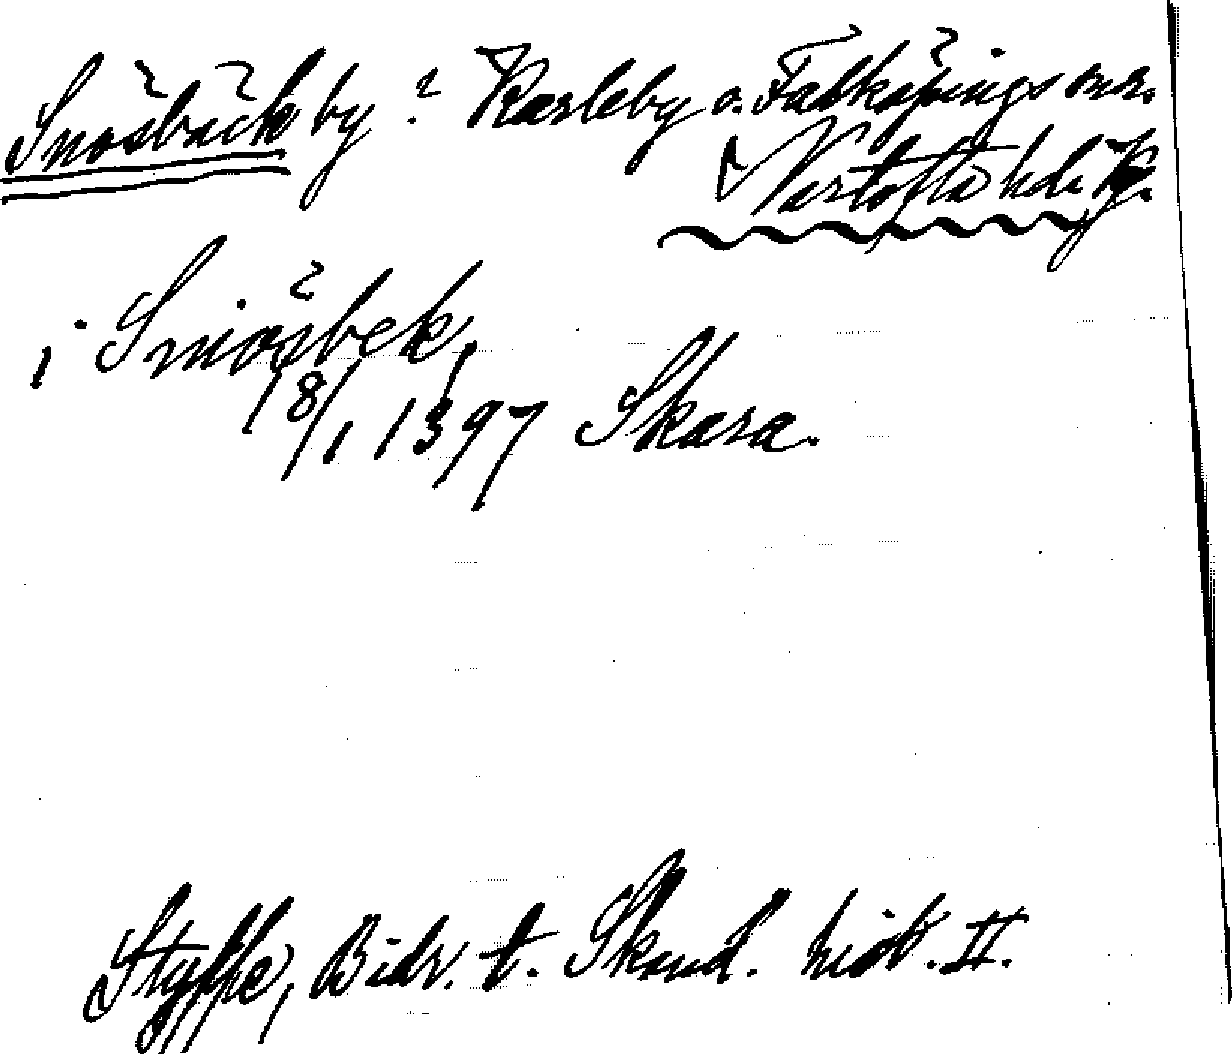 Snösbäck by? Karleby o. Falköpings snr.
Vartofta hd.
i Sniösbek,
18/1 1397 Skara.
Styffe, Bidr. t. Skand. hist. II.